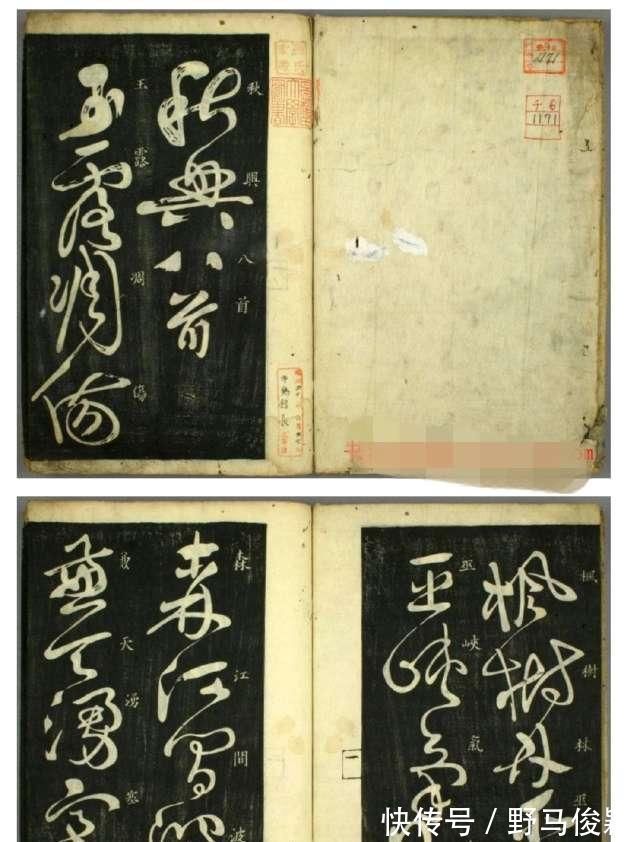 1171
千.6
1171
秋興八首
秋興八首
玉露凋傷
玉露凋傷
楓樹林巫
楓樹林巫
巫峽氣
巫峽氣
一
森江間波
森江間波
兼天湧塞
兼天湧塞
快传号 / 野马俊颖